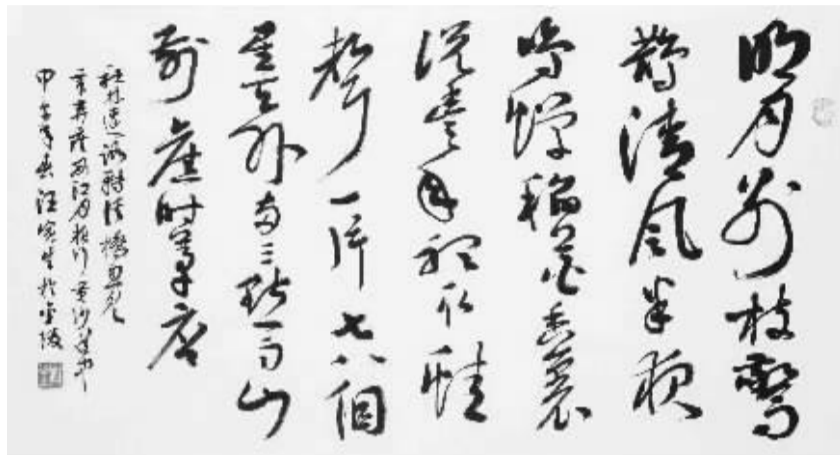 明月别枝驚
鵲清風半夜
鳴蟬稻花香裏
説豊年聽取蛙
聲一片七八個
星天外兩三點雨山
前舊時茅店
社林邊路轉溪橋忽見
辛弃疾西江月夜行黄沙道中
甲午年春汪寅生於金陵